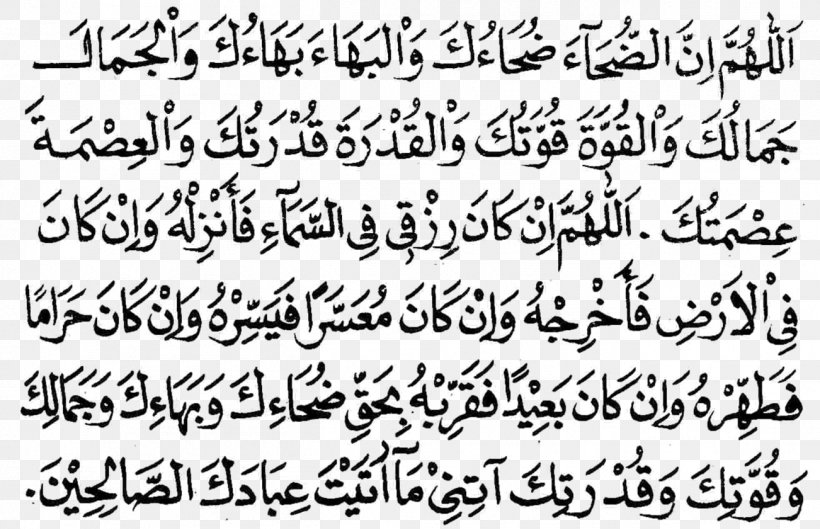 اَللّٰهُمَّ اِنَّ الضُّحَآءَ ضُحَاءُكَ وَالْبَهَاءَ بَهَاءُكَ وَالْجَمَالَ
جَمَالُكَ وَالْقُوَّةَ قُوَّتُكَ وَالْقُدْرَةَ قُدْرَتُكَ وَالْعِصْمَةَ
عِصْمَتُكَ . اَللّٰهُمَّ اِنْ كَانَ رِزْقِى فِى السَّمَآءِ فَأَنْزِلْهُ وَاِنْ كَانَ
فِى اْلاَرْضِ فَأَخْرِجْهُ وَاِنْ كَانَ مُعَسَّرًا فَيَسِّرْهُ وَاِنْ كَانَ حَرَامًا
فَطَهِّرْهُ وَاِنْ كَانَ بَعِيْدًا فَقَرِّبْهُ بِحَقِّ ضُحَاءِكَ وَبَهَاءِكَ وَجَمَالِكَ
وَقُوَّتِكَ وَقُدْرَتِكَ آتِنِيْ مَآاَتَيْتَ عِبَادَكَ الصَّالِحِيْنَ.